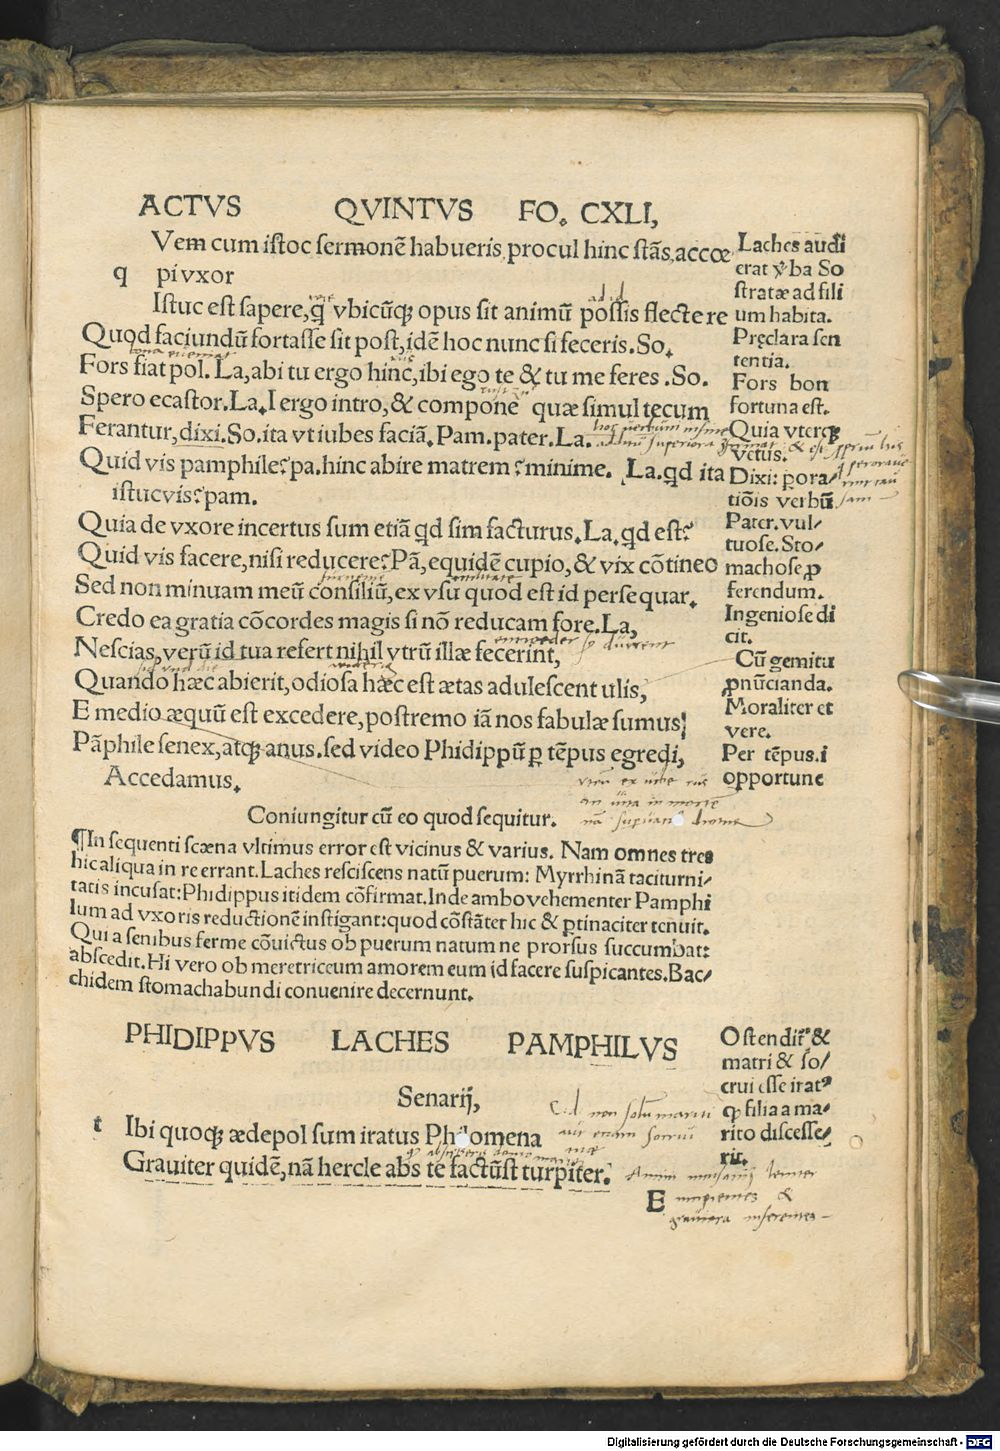 ACTVS QVINTVS FO. CXLI,
Vem cum iſtoc ſermonē habueris procul hinc ſtās, accœ
q pi vxor
Iſtuc eſt ſapere, q̄ vbicūqꝫ opus ſit animū poſſis flectere
Quod faciundū fortaſſe ſit poſt, idē hoc nunc ſi feceris. So.
Fors fiat pol. La, abi tu ergo hinc, ibi ego te & tu me feres. So.
Spero ecaſtor. La. I ergo intro, & compone quæ ſimul tecum
Ferantur, dixi. So. ita vt iubes faciā. Pam. pater. La.
Quid vis pamphile? pa. hinc abire matrem? minime. La. qd ita
iſtuc vis? pam.
Quia de vxore incertus ſum etiā qd ſim facturus. La. qd eſt?
Quid vis facere, niſi reducere? Pā, equidē cupio, & vix cōtineo
Sed non minuam meū conſiliū, ex vſu quod eſt id perſequar.
Credo ea gratia cōcordes magis ſi nō reducam fore. La,
Neſcias, verū id tua refert nihil vtrū illæ fecerint,
Quando hæc abierit, odioſa hæc eſt ætas aduleſcent ulis,
E medio æquū eſt excedere, poſtremo iā nos fabulæ ſumus
Pāphile ſenex, atqꝫ anus. ſed video Phidippū ꝑ tēpus egredi,
Accedamus.
Coniungitur cū eo quod ſequitur.
¶In ſequenti ſcæna vltimus error eſt vicinus & varius. Nam omnes tres
hic aliqua in re errant. Laches reſciſcens natū puerum: Myrrhinā taciturni/
tatis incuſat: Phidippus itidem cōfirmat. Inde ambo vehementer Pamphi
lum ad vxoris reductionē inſtigant: quod cōſtāter hic & ꝑtinaciter tenuit.
Qui a ſenibus ferme cōuictus ob puerum natum ne prorſus ſuccumbat:
abſcedit. Hi vero ob meretriceum amorem eum id facere ſuſpicantes. Bac/
chidem ſtomachabundi conuenire decernunt.
PHIDIPPVS LACHES PAMPHILVS
Senarij,
t Ibi quoqꝫ ædepol ſum iratus Philomena
Grauiter quidē, nā hercle abs te factūſt turpiter.
E
Laches audi
erat ꝟba So
ſtratæ ad fili
um habita.
Pręclara ſen
tentia.
Fors bon
fortuna eſt.
Quia vterqꝫ
vetus.
Dixi: ꝑora/
tiōis verbū
Pater. vul/
tuoſe. Sto/
machoſe ꝓ
ferendum.
Ingenioſe di
cit.
Cū gemitu
ꝓnūcianda.
Moraliter et
vere.
Per tēpus. i
opportune
Oſtendit &
matri & ſo/
crui eſſe irat⁹
ꝙ filia a ma/
rito diſceſſe/
rit.
Digitalisierung gefördert durch die Deutsche Forschungsgemeinschaft - DFG